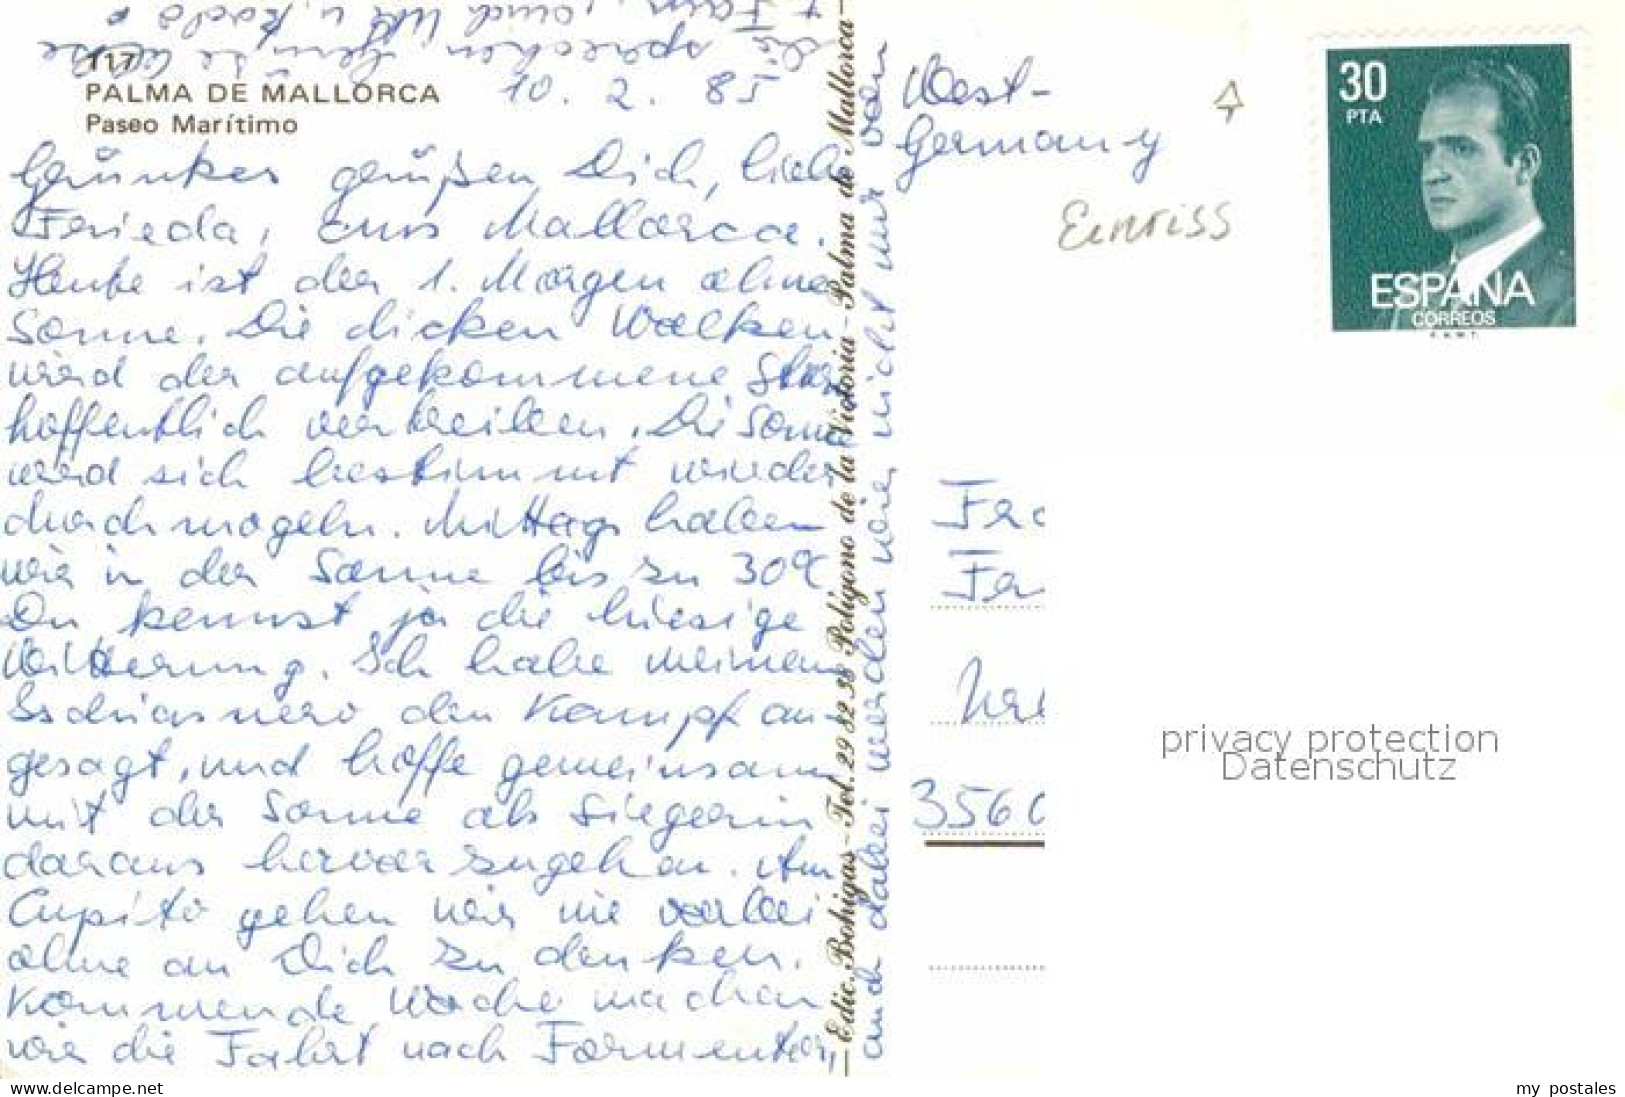 PALMA DE MALLORCA
Paseo Marítimo
10. 2. 85
grüßen Dich, liebe
Frieda, aus Mallorca.
Heute ist der 1. Morgen ohne
Sonne. Die dicken Wolken
wird der aufgekommene
hoffentlich vertreiben. Die Sonne
wird sich bestimmt wieder
durchmogeln. Mittags haben
wir in der Sonne bis zu 30°C
Du kennst ja die hiesige
Witterung. Ich habe meinem
den Kampf an-
gesagt, und hoffe gemeinsam
mit der Sonne als Siegerin
daraus hervorzugehen. Am
Cupito gehen wir nie vorbei
ohne an Dich zu denken.
Kommende Woche machen
wir die Fahrt nach Formentor,
und dabei werden wir nicht nur von
Edic. Bohigas - Tel. 29 82 38 Polígono de la Victoria - Palma de Mallorca
West-
Germany
Einriss
30
PTA
ESPAÑA
CORREOS
F.N.M.T.
3560
privacy protection
Datenschutz
www.delcampe.net
my_postales